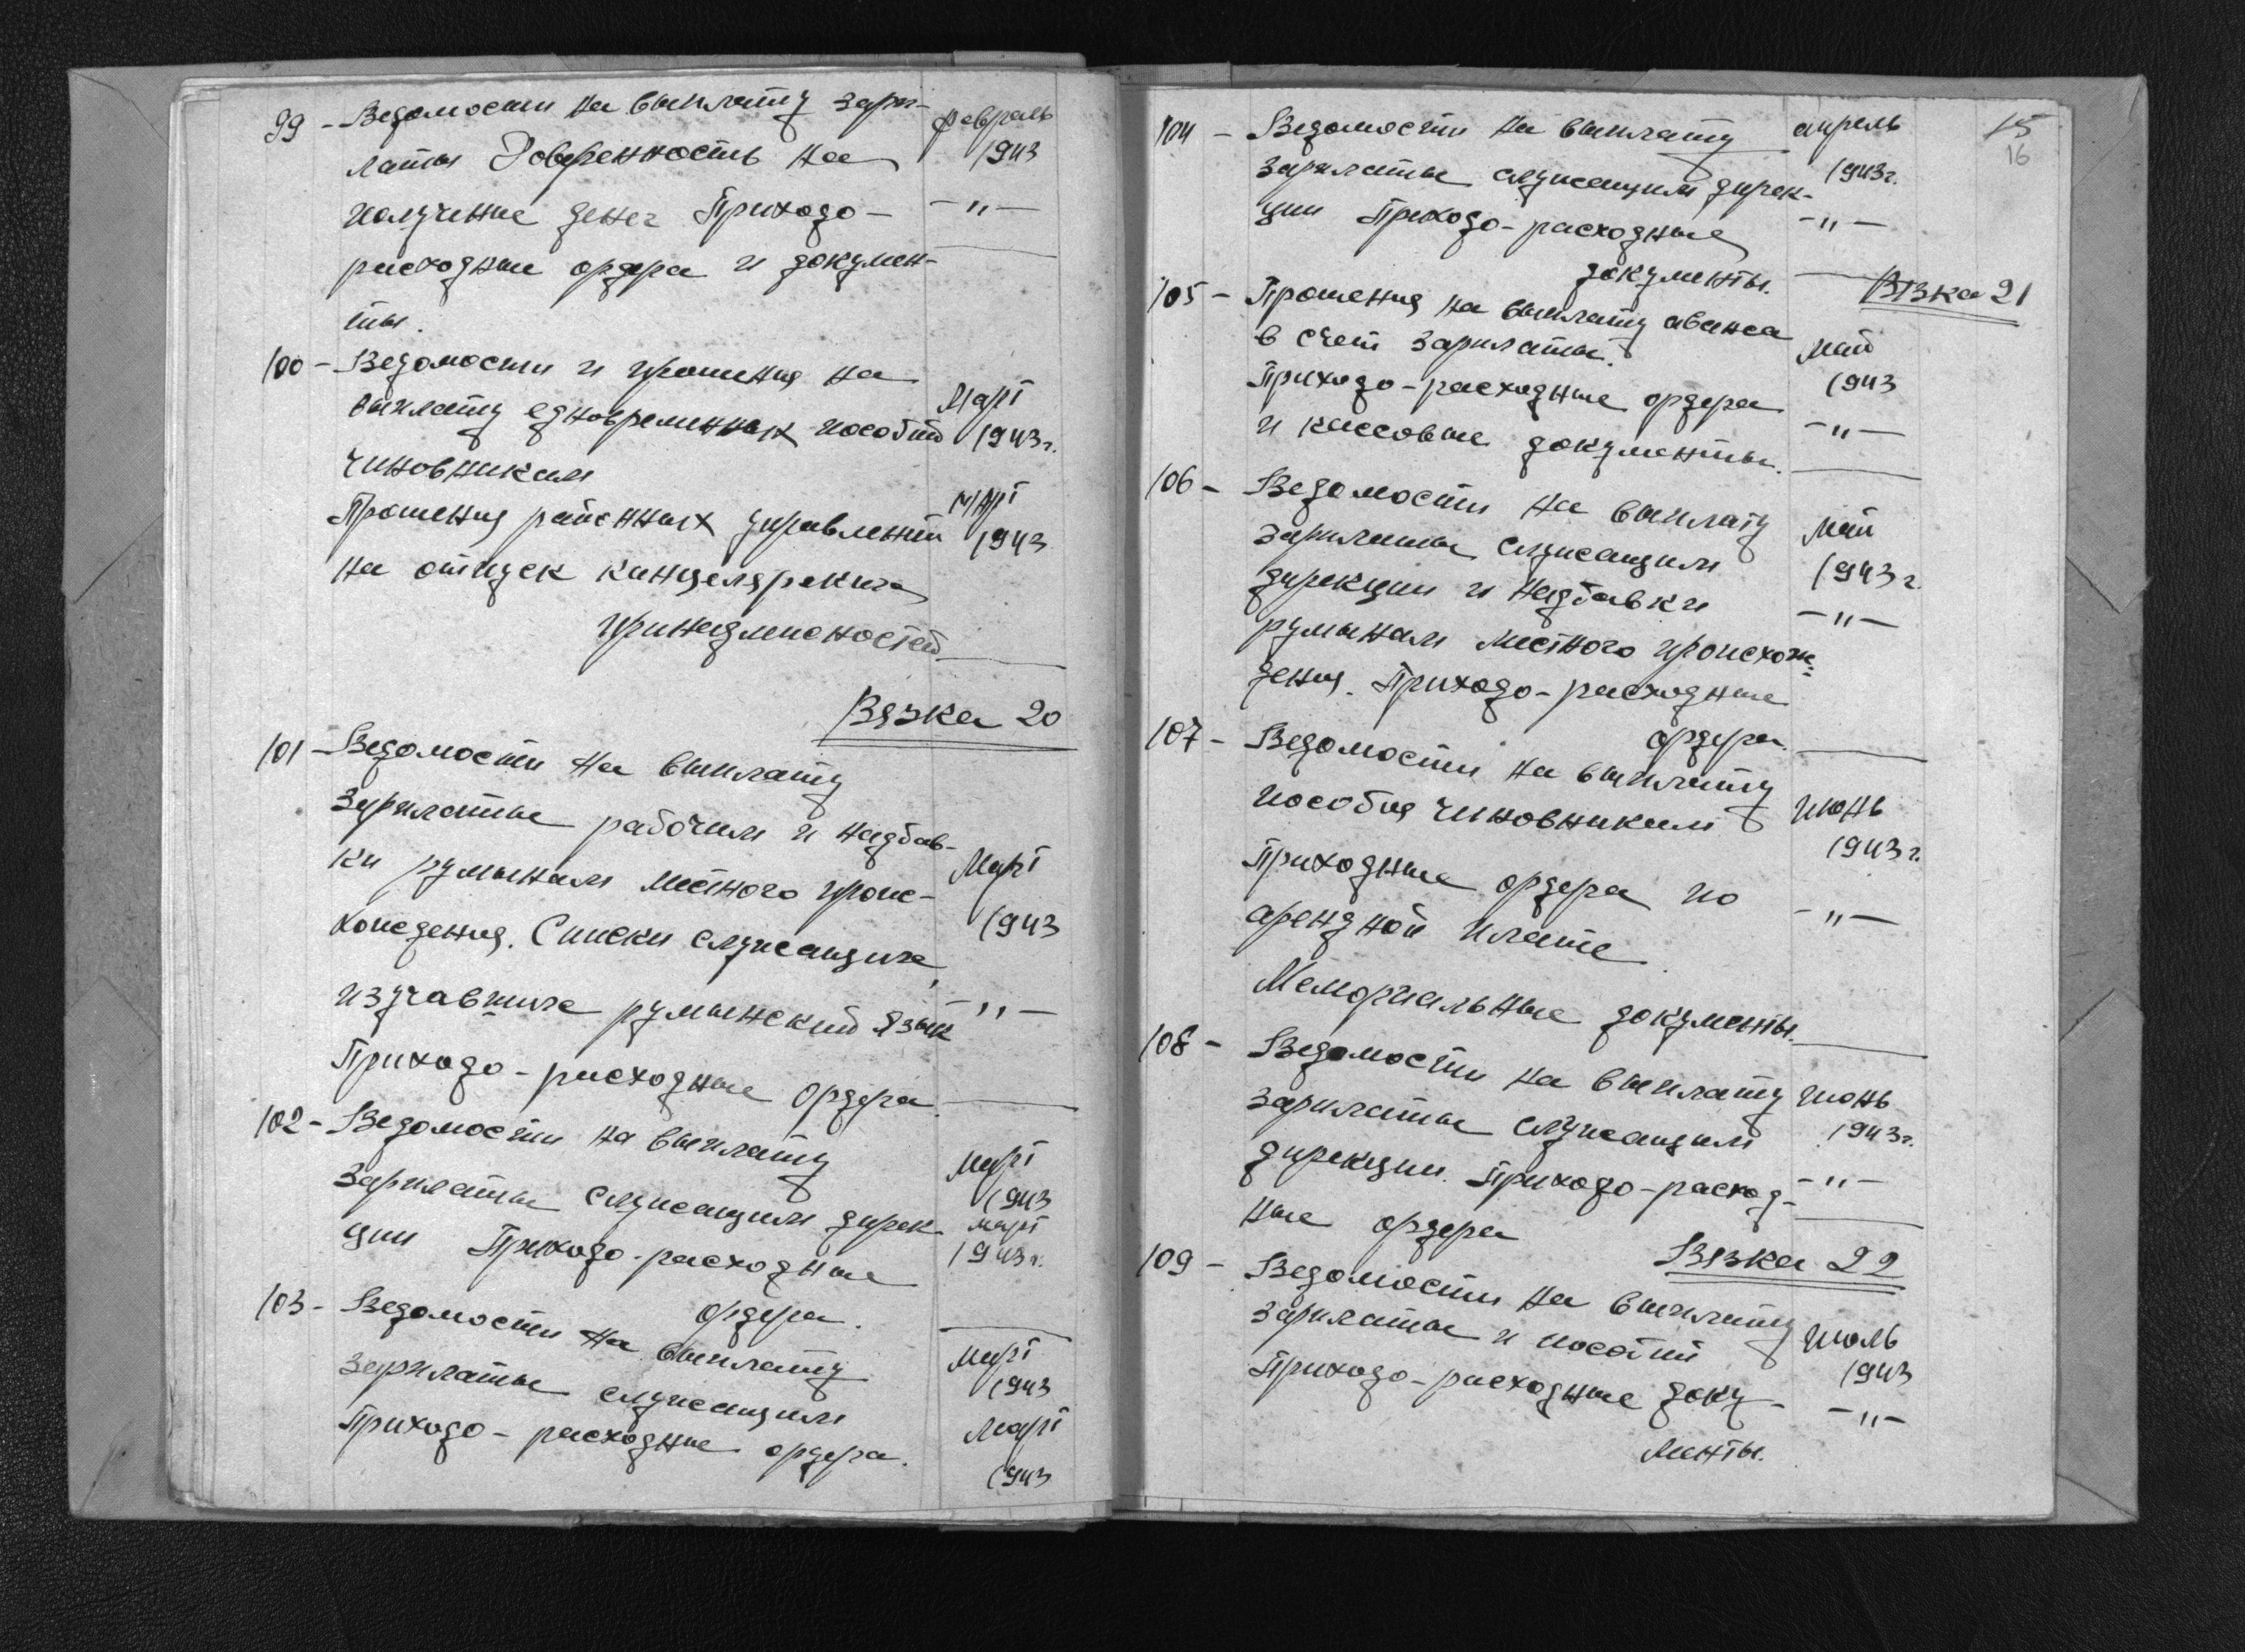 99 - Ведомости на выплату зарп- февраль
латы Доверенность на 1943
получение денег Приходо- -"-
расходные ордера и докумен-
ты.
100 - Ведомости и прошения на
выплату едновременных пособий Март 1943г.
чиновникам
Прошения районных управлений март 1943
на отпуск канцелярских
принадлежностей
Вязка 20
101 - Ведомости на выплату
зарплаты рабочим и надбав-
ки румынам местного проис- Март
хождения. Списки служащих, 1943
изучавших румынский язык -"-
Приходо-расходные ордера.
102 - Ведомости на выплату
зарплаты служащим дирек- март 1943
ции Приходо-расходные март 1943г.
ордера.
103 - Ведомости на выплату март
зарплаты служащим 1943
Приходо-расходные ордера. Март
1943
15
16
104 - Ведомости на выплату апрель
зарплаты служащим дирек- 1943г.
ции Приходо-расходные -"-
документы.
Вязка 21
105 - Прошения на выплату аванса
в счет зарплаты. май
Приходо-расходные ордера 1943
и кассовые документы. -"-
106 - Ведомости на выплату
зарплаты служащим май
дирекции и надбавки 1943г.
румынам местного происхож- -"-
дения. Приходо-расходные
ордера.
107 - Ведомости на выплату
пособия чиновникам июнь
1943г.
Приходные ордера по
арендной плате -"-
Мемориальные документы.
108 - Ведомости на выплату июнь
зарплаты служащим 1943г.
дирекции. Приходо-расход- -"-
ные ордера
Вязка 22
109 - Ведомости на выплату
зарплаты и пособий июль
Приходо-расходные доку- 1943
менты. -"-